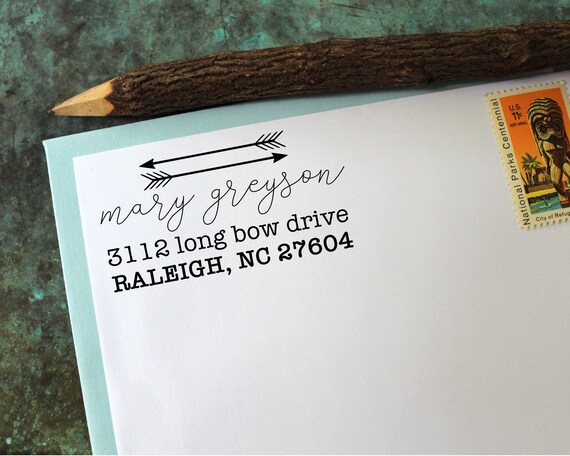 mary greyson
3112 long bow drive
RALEIGH, NC 27604
National Parks Centennial
U.S.
11c
AIR MAIL
City of Refug